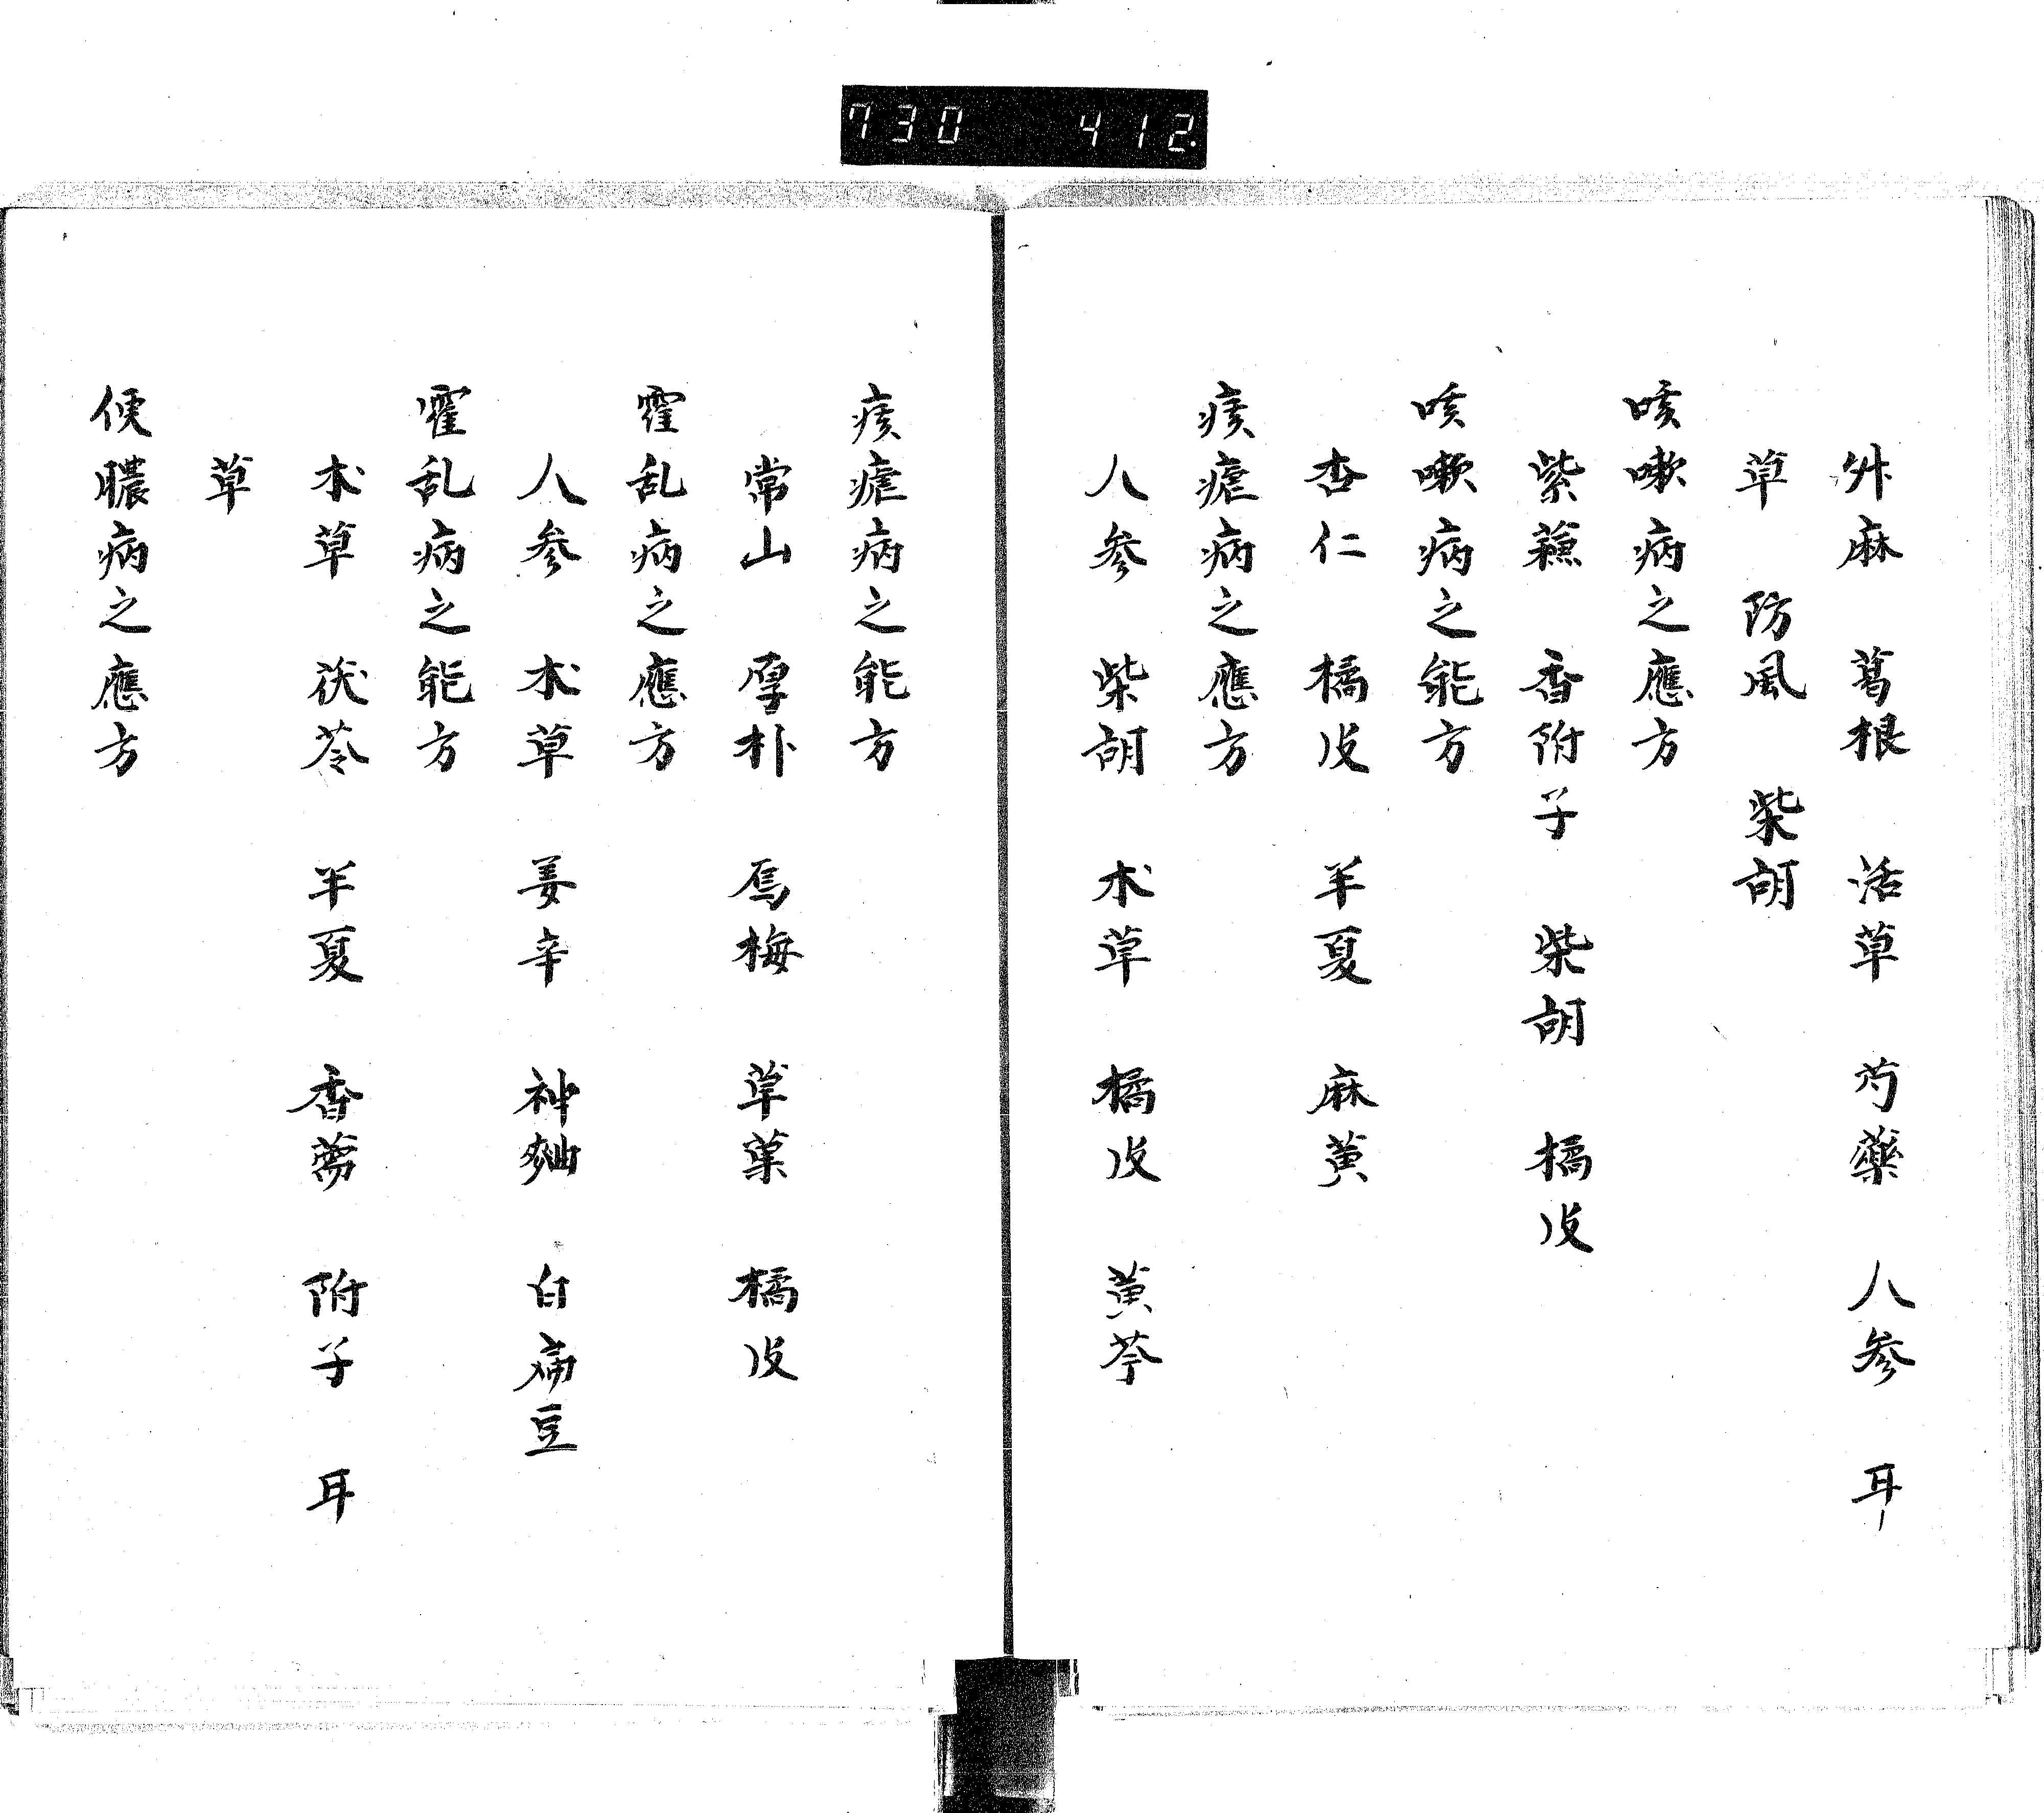 730 412.
升麻 葛根 活草 芍藥 人参 耳
草 防風 柴胡
咳嗽病之應方
紫蘓 香附子 柴胡 橘皮
咳嗽病之能方
杏仁 橘皮 半夏 麻黄
痎瘧病之應方
人参 柴胡 朮草 橘皮 黄芩
痎瘧病之能方
常山 厚朴 烏梅 草菓 橘皮
霍乱病之應方
人参 朮草 姜辛 神麯 白扁豆
霍乱病之能方
朮草 茯苓 半夏 香薷 附子 耳
草
便膿病之應方